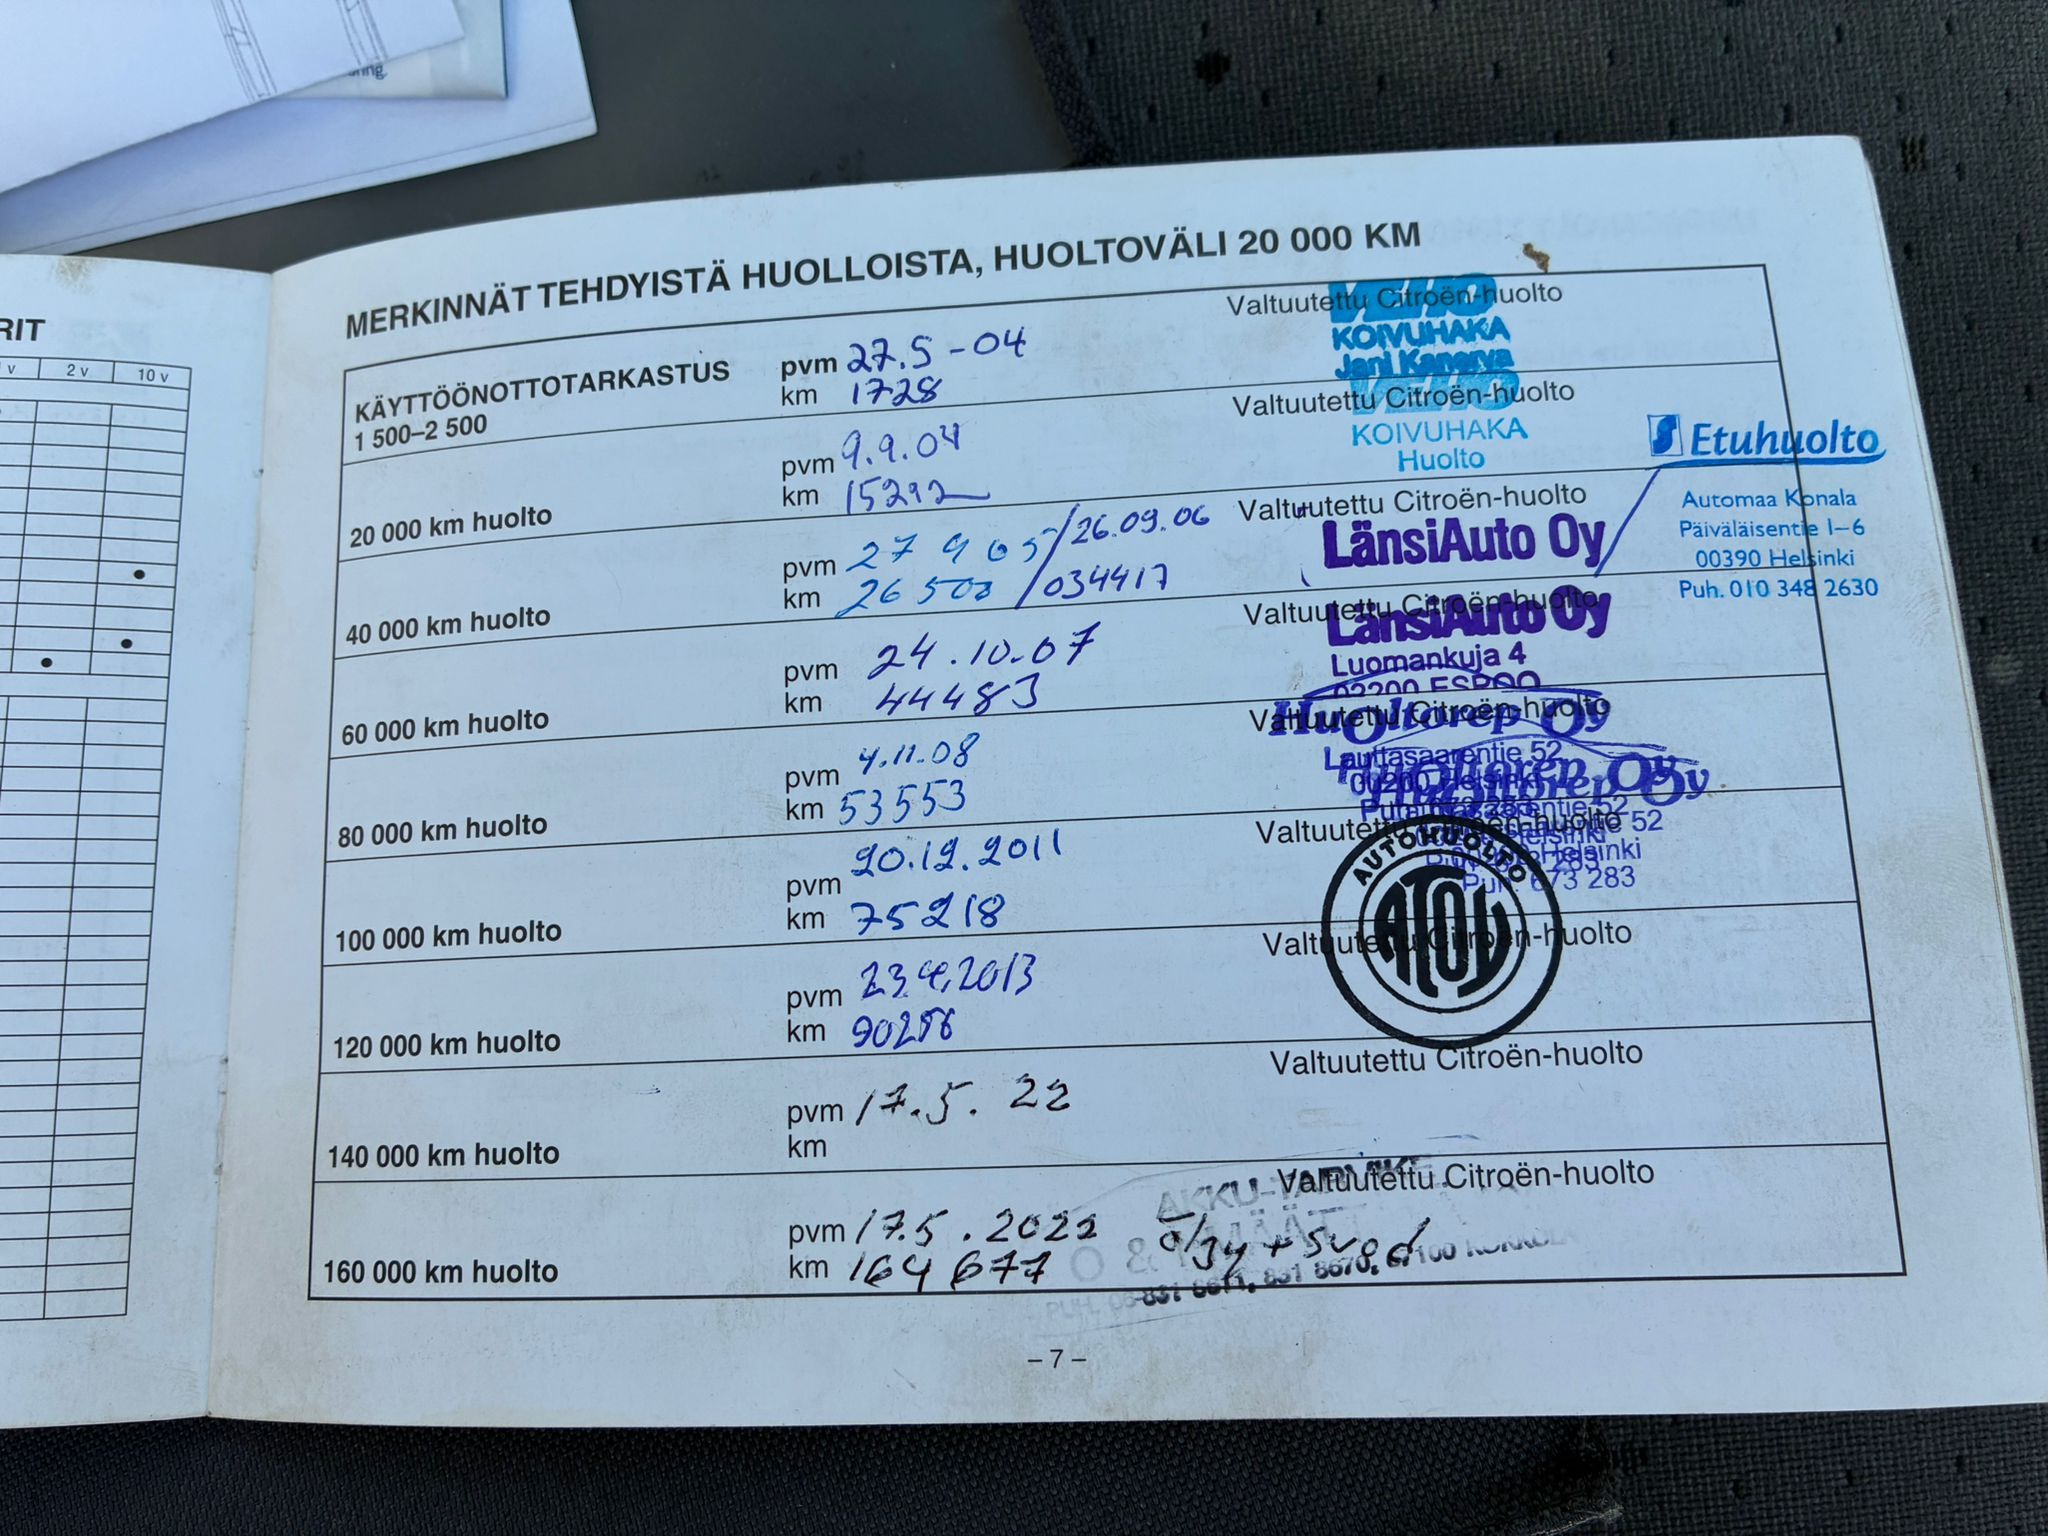 RIT
v 2 v 10 v
MERKINNÄT TEHDYISTÄ HUOLLOISTA, HUOLTOVÄLI 20 000 KM
KÄYTTÖÖNOTTOTARKASTUS
1 500–2 500
pvm 27.5-04
km 1728
Valtuutettu Citroën-huolto
VEHO
KOIVUHAKA
Jani Kanerva
20 000 km huolto
pvm 9.9.04
km 15292
Valtuutettu Citroën-huolto
VEHO
KOIVUHAKA
Huolto
40 000 km huolto
pvm 27 9 05 / 26.09.06
km 26 500 / 034417
Valtuutettu Citroën-huolto
LänsiAuto Oy
Etuhuolto
Automaa Konala
Päiväläisentie 1–6
00390 Helsinki
Puh. 010 348 2630
60 000 km huolto
pvm 24.10-07
km 44483
Valtuutettu Citroën-huolto
LänsiAuto Oy
Luomankuja 4
02200 ESPOO
80 000 km huolto
pvm 4.11.08
km 53553
Valtuutettu Citroën-huolto
Huoltorep Oy
Lauttasaarentie 52
00200 Helsinki
100 000 km huolto
pvm 20.12.2011
km 75218
Valtuutettu Citroën-huolto
Huoltorep Oy
52
Helsinki
Puh. 673 283
120 000 km huolto
pvm 23.4.2013
km 90256
Valtuutettu Citroën-huolto
AUTOHUOLTO
ATOY
140 000 km huolto
pvm 17.5. 22
km
Valtuutettu Citroën-huolto
160 000 km huolto
pvm 17.5.2022
km 164 677
Valtuutettu Citroën-huolto
PUH. 06-831 8611, 831 8670, 67100 KOKKOLA
– 7 –